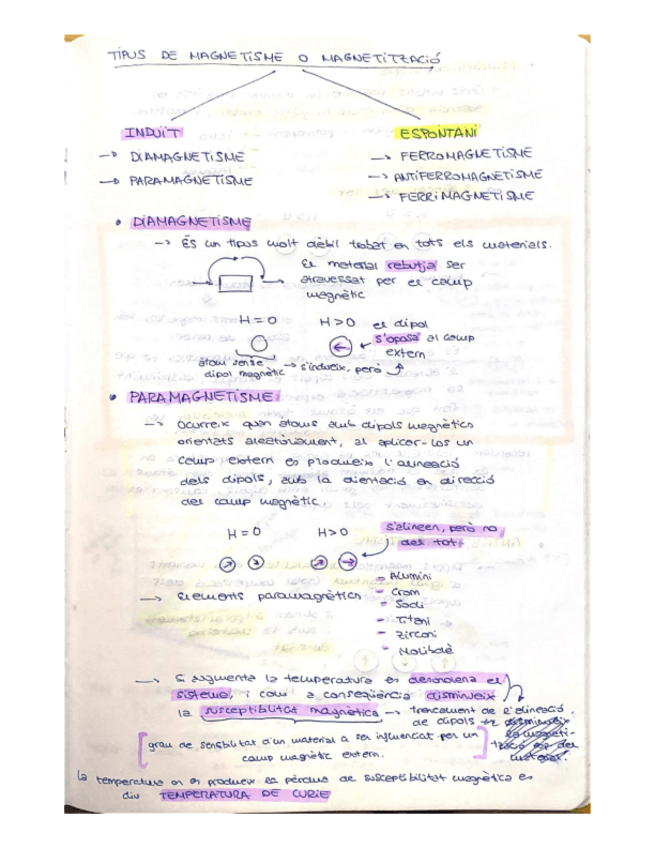 TIPUS DE MAGNETISME O MAGNETITZACIÓ
INDUÏT
→ DIAMAGNETISME
→ PARAMAGNETISME
ESPONTANI
→ FERROMAGNETISME
→ ANTIFERROMAGNETISME
→ FERRIMAGNETISME
• DIAMAGNETISME
→ És un tipus molt dèbil trobat en tots els materials.
El material rebutja ser
atravessat per el camp
magnètic
H = 0
H > 0
el dipol
s'oposa al camp
extern
àtom sense
dipol magnètic
→ s'indueix, però
• PARAMAGNETISME
→ Ocurreix quan àtoms amb dipols magnètics
orientats aleatòriament, al aplicar-los un
camp extern es produeix l'alineació
dels dipols, amb la orientació en direcció
del camp magnètic.
H = 0
H > 0
s'alineen, però no
del tot
→ Elements paramagnètics
- Alumini
- Crom
- Sodi
- Titani
- Zirconi
- Molibdè
→ Si augmenta la temperatura es desordena el
sistema, i com a conseqüència disminueix
la susceptibilitat magnètica → trencament de l'alineació
de dipols
[grau de sensibilitat d'un material a ser influenciat per un
camp magnètic extern.]
la temperatura on es produeix la pèrdua de susceptibilitat magnètica es
diu TEMPERATURA DE CURIE